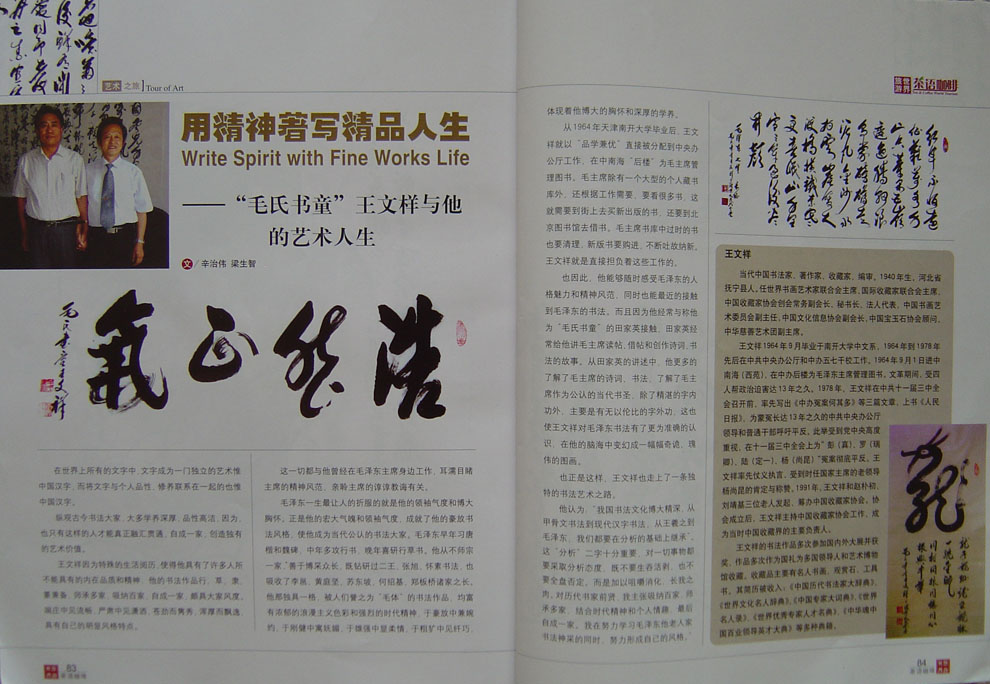 艺术之旅 Tour of Art
用精神著写精品人生
Write Spirit with Fine Works Life
——“毛氏书童”王文祥与他
的艺术人生
文/辛治伟 梁生智
浩然正气
毛氏书童王文祥
在世界上所有的文字中，文字成为一门独立的艺术惟
中国汉字，而将文字与个人品性、修养联系在一起的也惟
中国汉字。
纵观古今书法大家，大多学养深厚，品性高洁，因为，
也只有这样的人才能真正融汇贯通，自成一家，创造独有
的艺术价值。
王文祥因为特殊的生活阅历，使得他具有了许多人所
不能具有的内在品质和精神。他的书法作品行、草、隶、
篆兼备，师承多家，吸纳百家，自成一家，颇具大家风度。
端庄中见流畅，严肃中见潇洒，苍劲而隽秀，浑厚而飘逸，
具有自己的明显风格特点。
这一切都与他曾经在毛泽东主席身边工作，耳濡目睹
主席的精神风范，亲聆主席的谆谆教诲有关。
毛泽东一生最让人的折服的就是他的领袖气度和博大
胸怀。正是他的宏大气魄和领袖气度，成就了他的豪放书
法风格，使他成为当代公认的书法大家。毛泽东早年习唐
楷和魏碑，中年多放行书，晚年喜研行草书。他从不师宗
一家，善于博采众长，既钻研过二王、张旭、怀素书法，也
吸收了李邕、黄庭坚、苏东坡、何绍基、郑板桥诸家之长。
他那独具一格，被人们誉之为“毛体”的书法作品，均富
有浓郁的浪漫主义色彩和强烈的时代精神，于豪放中兼婉
约，于刚健中寓妩媚，于雄强中显柔情，于粗犷中见纤巧，
83
茶语咖啡
体现着他博大的胸怀和深厚的学养。
从1964年天津南开大学毕业后，王文
祥就以“品学兼优”直接被分配到中央办
公厅工作，在中南海“后楼”为毛主席管
理图书。毛主席除有一个大型的个人藏书
库外，还根据工作需要，要看很多书，这
就需要到街上去买新出版的书，还要到北
京图书馆去借书。毛主席书库中过时的书
也要清理，新版书要购进，不断吐故纳新。
王文祥就是直接担负着这些工作的。
也因此，他能够随时感受毛泽东的人
格魅力和精神风范，同时也能最近的接触
到毛泽东的书法。而且因为他经常与称他
为“毛氏书童”的田家英接触，田家英经
常给他讲毛主席读帖、借帖和创作诗词、书
法的故事。从田家英的讲述中，他更多的
了解了毛主席的诗词、书法，了解了毛主
席作为公认的当代书圣，除了精湛的字内
功外，主要是有无以伦比的字外功，这也
使王文祥对毛泽东书法有了更为准确的认
识，在他的脑海中变幻成一幅幅奇诡、瑰
伟的图画。
也正是这样，王文祥也走上了一条独
特的书法艺术之路。
他认为，“我国书法文化博大精深，从
甲骨文书法到现代汉字书法，从王羲之到
毛泽东，我们都要在分析的基础上继承”，
这“分析”二字十分重要，对一切事物都
要采取分析态度，既不要生吞活剥，也不
要全盘否定，而是加以咀嚼消化，长我之
肉，对历代书家前贤，我主张吸纳百家，师
承多家，结合时代精神和个人情趣，最后
自成一家。我在努力学习毛泽东他老人家
书法神采的同时，努力形成自己的风格。”
世界旅游 茶语咖啡
红军不怕远
征难万水千
山只等闲五岭
逶迤腾细浪
王文祥
当代中国书法家、著作家、收藏家、编审。1940年生，河北省
抚宁县人。任世界书画艺术家联合会主席，国际收藏家联合会主席，
中国收藏家协会创会常务副会长、秘书长、法人代表，中国书画艺
术委员会副主任，中国文化信息协会副会长，中国宝玉石协会顾问，
中华慈善艺术团副主席。
王文祥1964年9月毕业于南开大学中文系。1964年到1978年
先后在中共中央办公厅和中办五七干校工作。1964年9月1日进中
南海（西苑），在中办后楼为毛泽东主席管理图书。文革期间，受四
人帮政治迫害达13年之久。1978年，王文祥在中共十一届三中全
会召开前，率先写出《中办冤案何其多》等三篇文章，上书《人民
日报》，为蒙冤长达13年之久的中共中央办公厅
领导和普通干部呼吁平反。此举受到党中央高度
重视，在十一届三中全会上为“彭（真）、罗（瑞
卿）、陆（定一）、杨（尚昆）”冤案彻底平反。王
文祥率先仗义执言，受到时任国家主席的老领导
杨尚昆的肯定与称赞。1991年，王文祥和赵朴初、
刘靖基三位老人发起，筹办中国收藏家协会。协
会成立后，王文祥主持中国收藏家协会工作，成
为当时中国收藏界的主要负责人。
王文祥的书法作品多次参加国内外大展并获
奖，作品多次作为国礼为多国领导人和艺术博物
馆收藏。收藏品主要有名人书画、观赏石、工具
书。其简历被收入：《中国历代书法家大辞典》、
《世界文化名人辞典》、《中国专家大词典》、《世界
名人录》、《世界优秀专家人才名典》、《中华魂中
国百业领导英才大典》等多种典籍。
龙
84
茶语咖啡